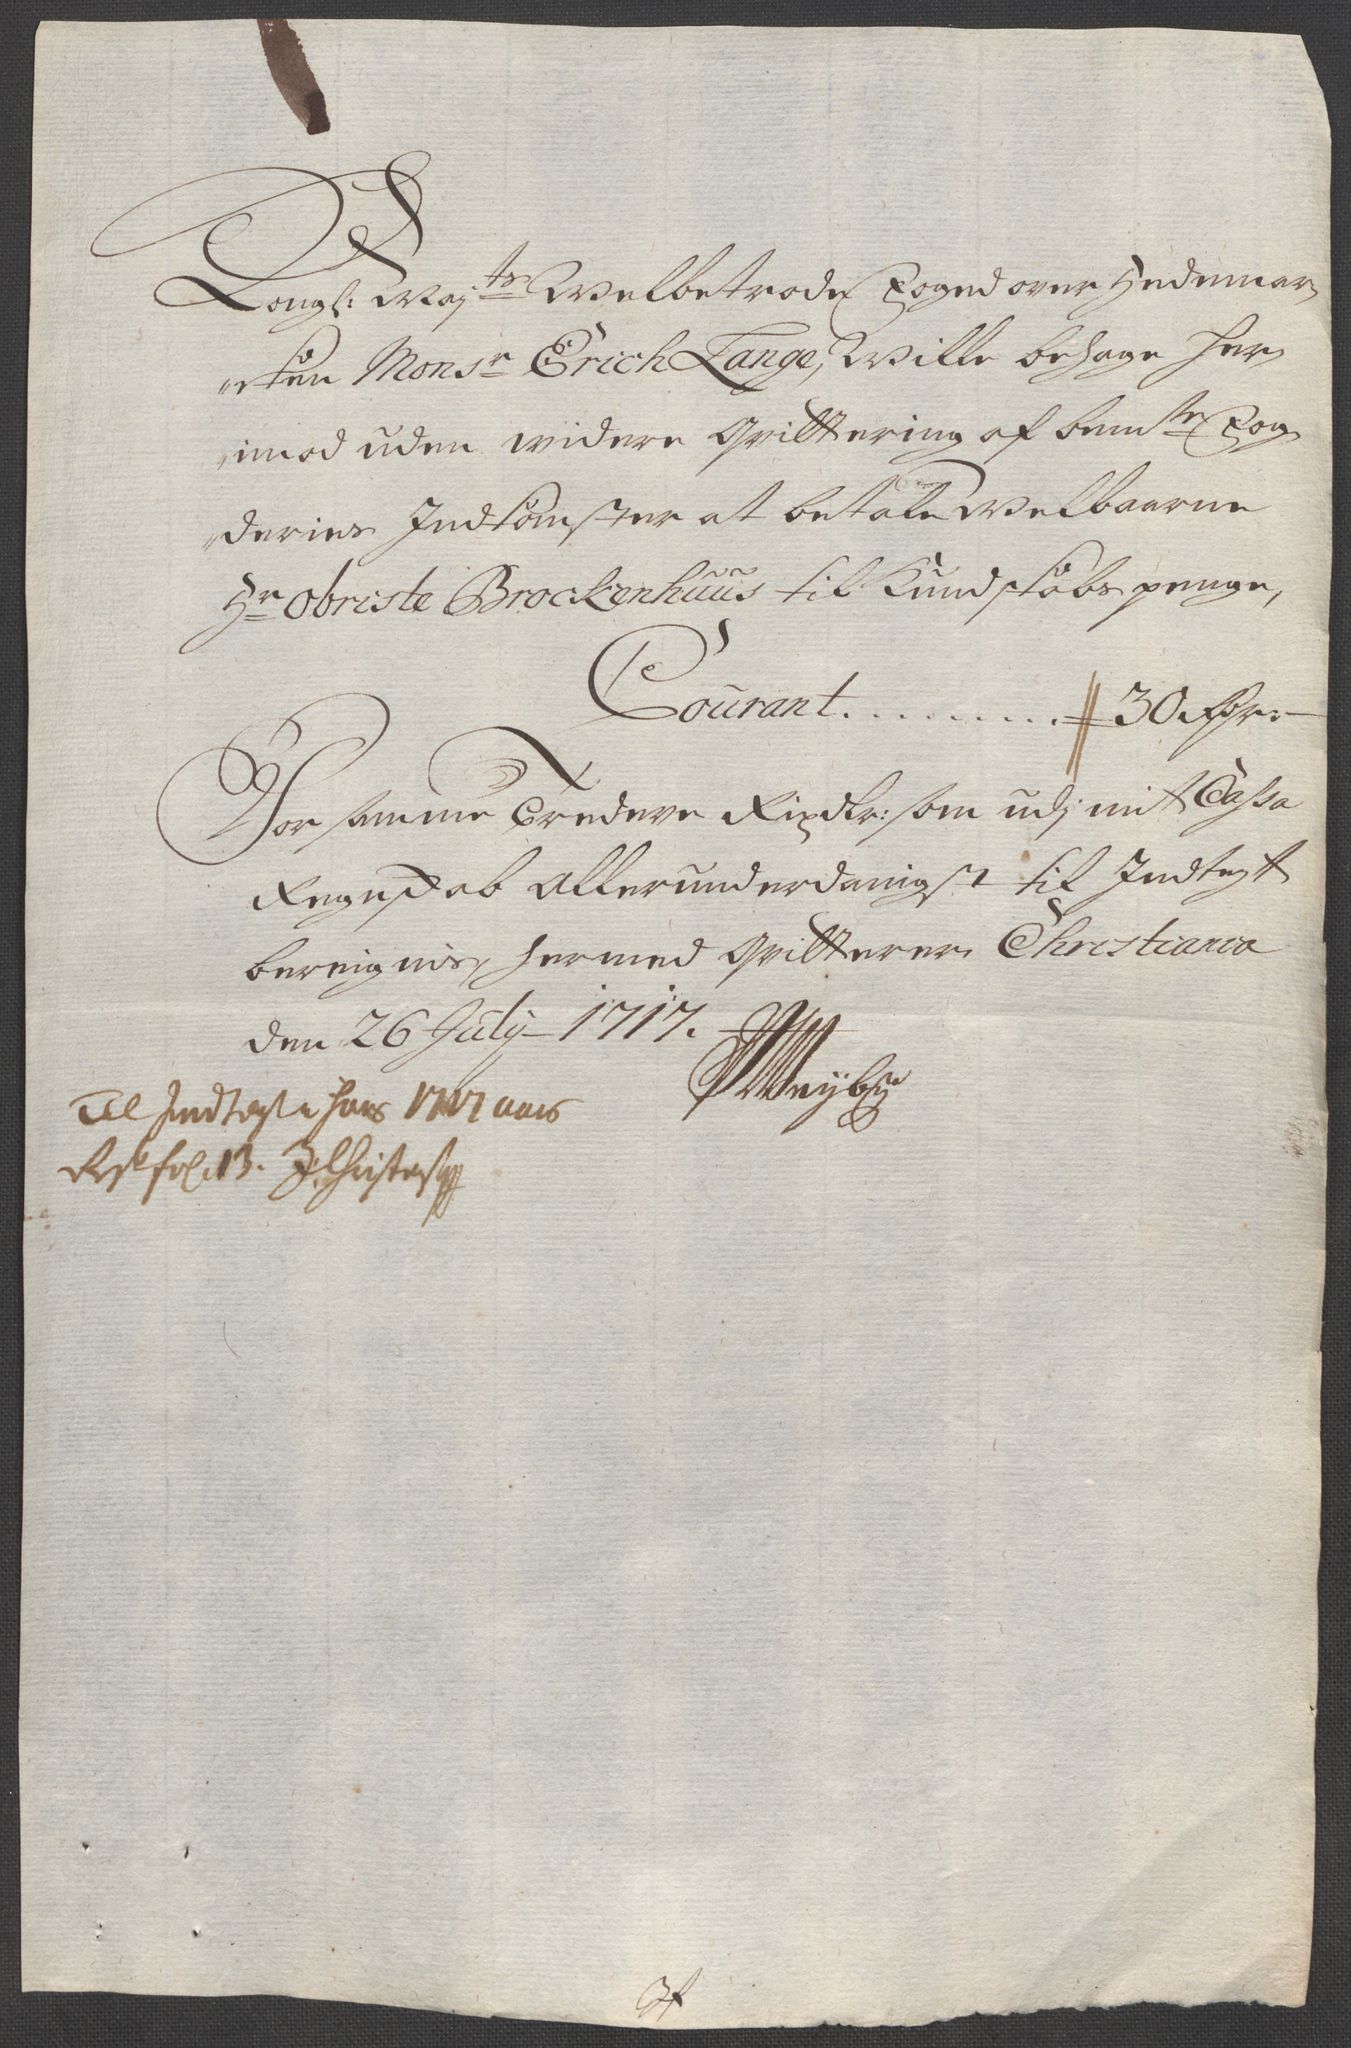 Kongl: May:ts Welbetrode Foged over Hedemar,,
,,ken Monsr Erich Lange, Wille behage her,,
,,imod uden widere Qvittering af bemte Fog,,
,,deries Indkomster at betale Welbaarne
Hr Obriste Brockenhuus til Kundskabs penge,
Courant. . . . . . . . 30 Rdr:
For samme Tredeve Rixdlr: som udj mit Cassa
Regnskab allerunderdanigst til Indtegt
bereignis, hermed Qvitterer. Christiania
den 26 July 1717.
Til Indtegt
1717 aars
fol: 13.